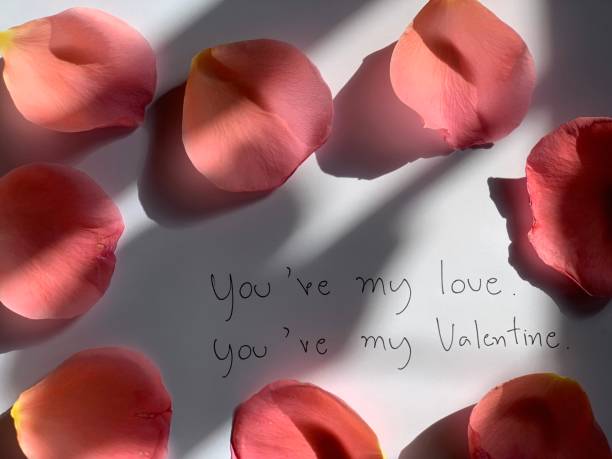 You've my love.
You've my Valentine.